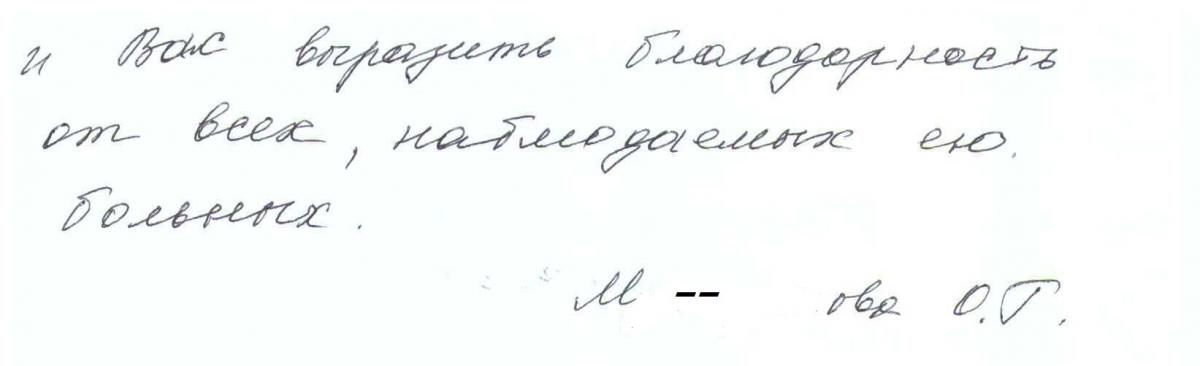 и Вас выразить благодарность
от всех, наблюдаемых ею.
больных.
М -- ова О.Г.